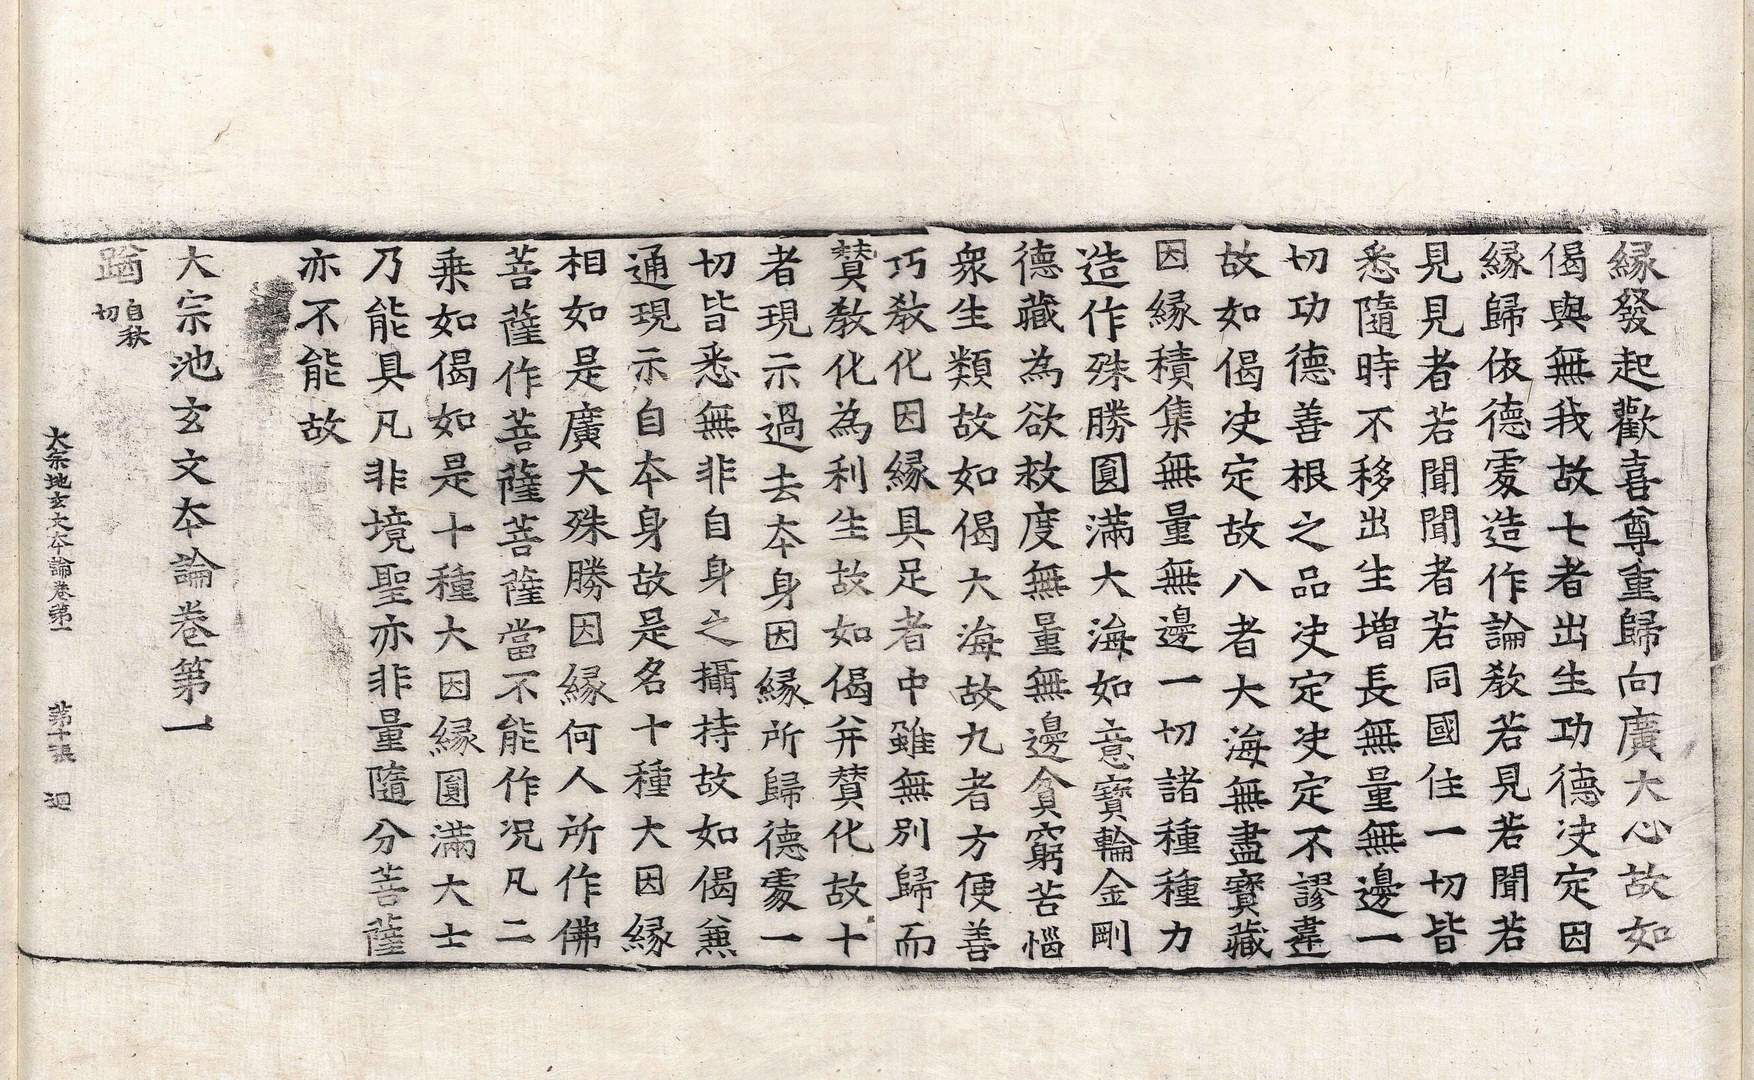 縁發起歡喜尊重歸向廣大心故如
偈與無我故七者出生功德决定因
縁歸依德䖏造作論教若見若聞若
見見者若聞聞者若同國住一切皆
悉隨時不移出生增長無量無邊一
切功德善根之品决定决定不謬違
故如偈决定故八者大海無盡寶藏
因縁積集無量無邊一切諸種種力
造作殊勝圓滿大海如意寶輪金剛
德藏為欲救度無量無邊貧窮苦惱
衆生類故如偈大海故九者方便善
巧教化因縁具足者中雖無別歸而
賛教化為利生故如偈并賛化故十
者現示過去夲身因縁所歸德䖏一
切皆悉無非自身之攝持故如偈兼
通現示自夲身故是名十種大因縁
相如是廣大殊勝因縁何人所作佛
菩薩作菩薩菩薩當不能作况凡二
乗如偈如是十種大因縁圓滿大士
乃能具凡非境聖亦非量隨分菩薩
亦不能故
大宗池玄文夲論卷第一
䠓自秋切
大宗地玄文夲論卷第一 第十張 迴